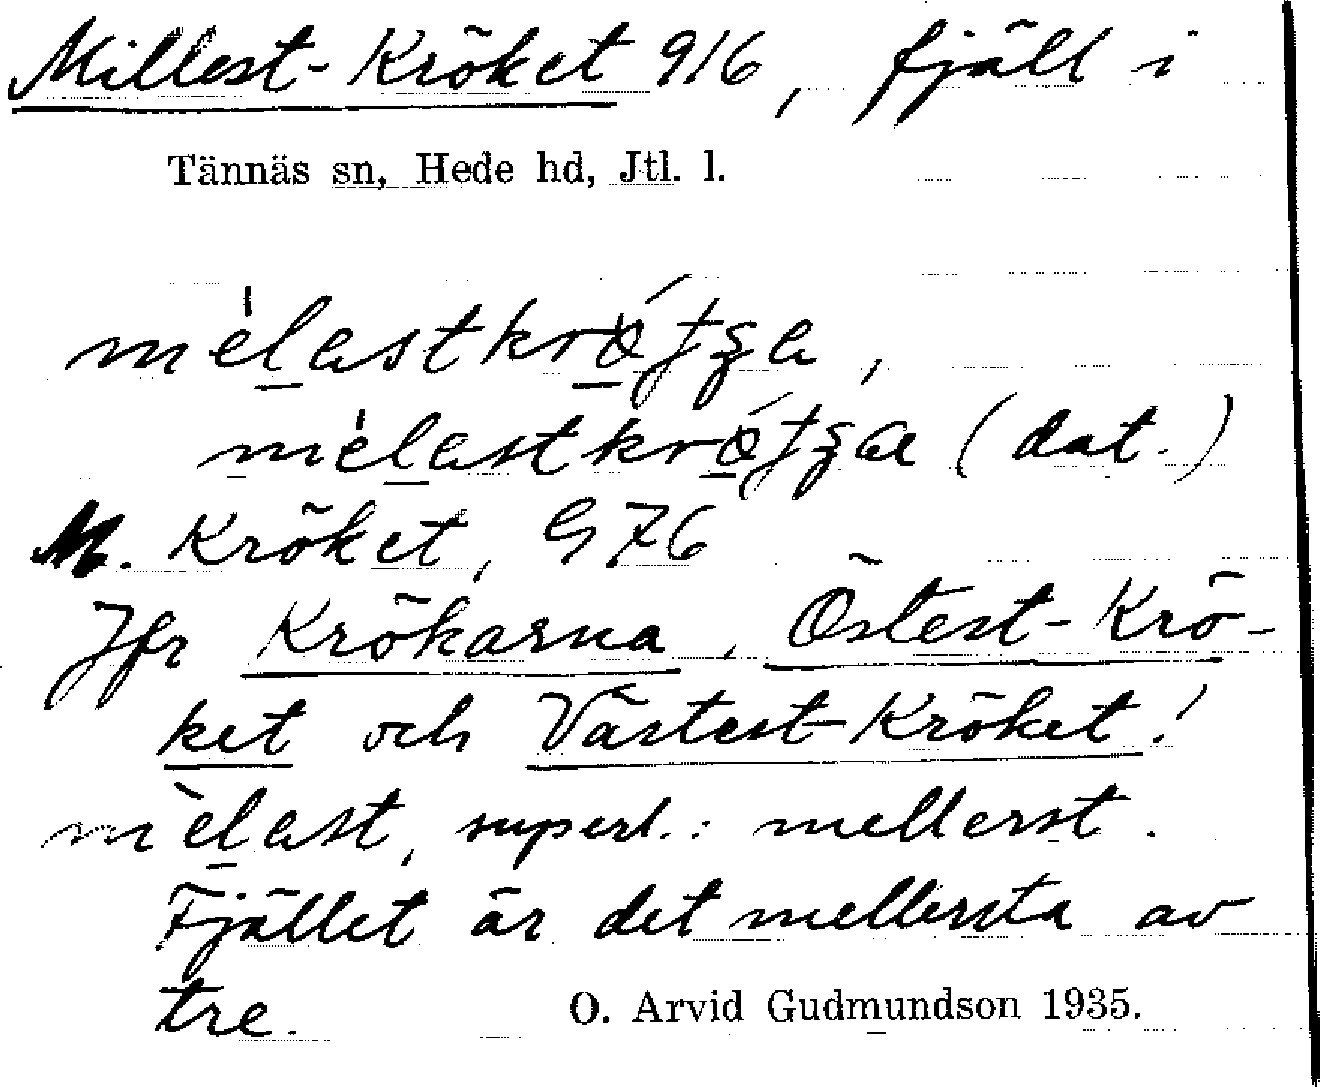 Millest-Kröket 916, fjäll i
Tännäs sn, Hede hd, Jtl. l.
(dat.)
M. Kröket, G 76
Jfr Krökarna, Östest-Krö-
ket och Västest-Kröket!
mèlast, superl.: mellerst.
Fjället är det mellersta av
tre.
O. Arvid Gudmundson 1935.